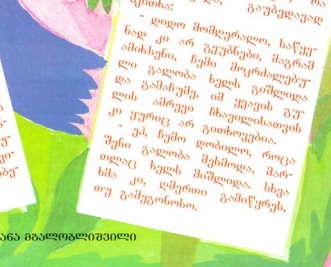 კითხა: გაუბედავად
- დიდო მომღერალო, საწყე-
ნად კი არ გეუბნები, მაგრამ
ამიხსენი, ჩემი მოკრძალებუ-
ლი გალობა ხელს გიშლიდა
და გამაჩუმე, იმ ყვავის გუ-
ლის ამრევი ჩხავილისათვის
კი ყურიც არ გითხოვებია.
- ეჰ, ჩემო დობილო, როცა
შენი გალობა მესმოდა, მარ-
თლაც ხელს მიშლიდა. სხვა
ხმა კი, ღმერთი გამიწყრეს,
თუ გამეგონოსო.
ანა მგალობლიშვილი